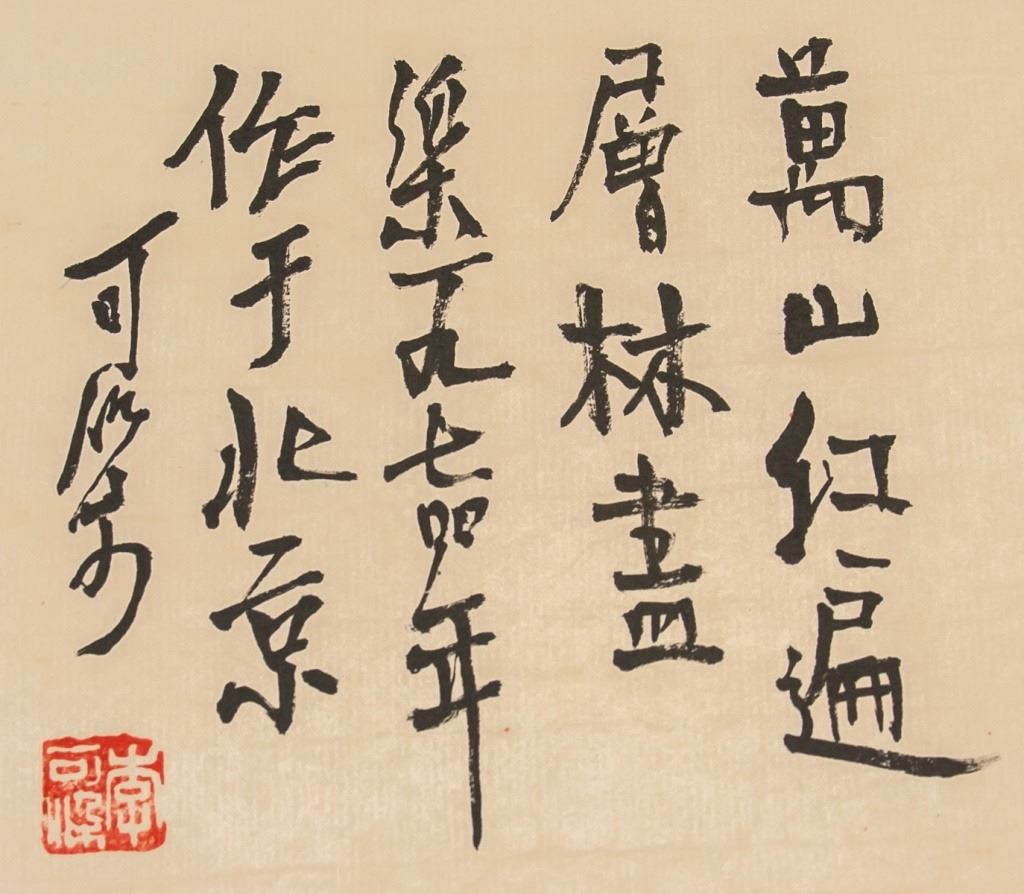 萬山红遍
層林盡
染一九七四年
作于北京
可染
李可染